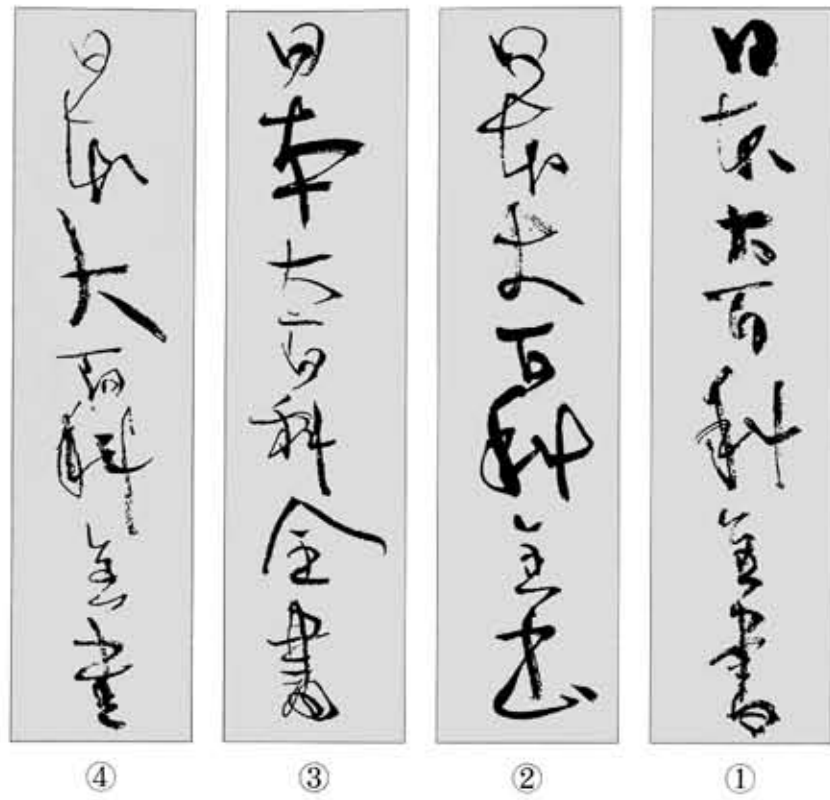 日本大百科全書
①
日本大百科全書
②
日本大百科全書
③
日本大百科全書
④